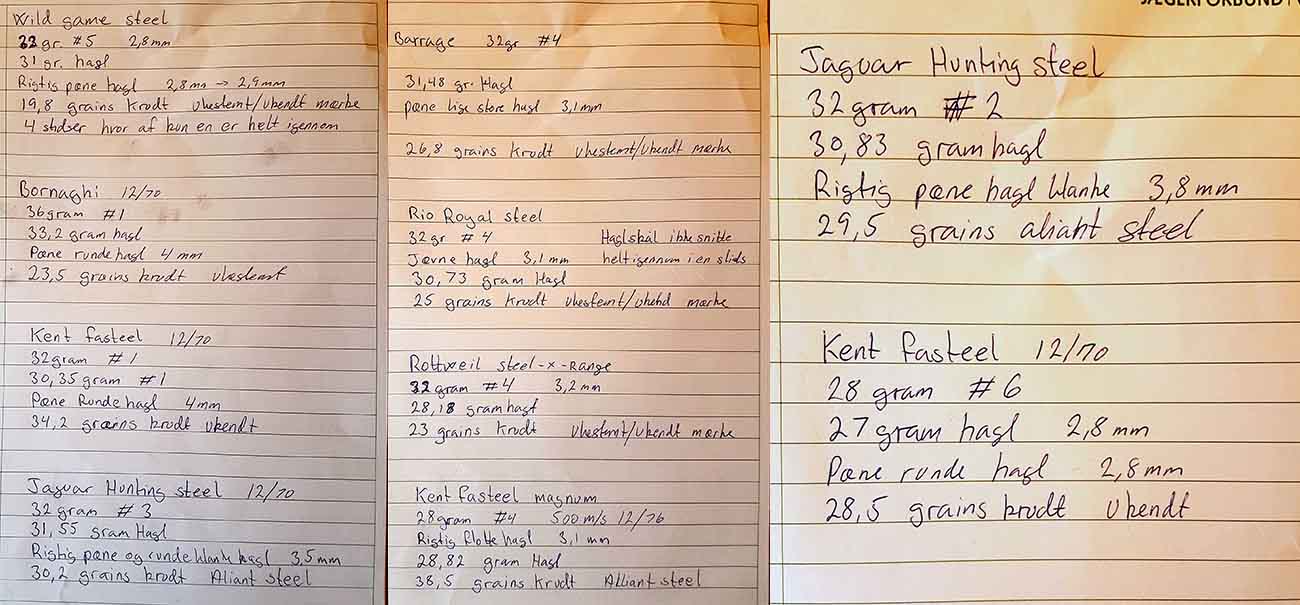 Wild game steel
32 gr. #5 2,8mm
31 gr. hagl
Rigtig pæne hagl 2,8mm → 2,9mm
19,8 grains krudt ubestemt/ukendt mærke
4 slidser hvor af kun en er helt igennem
Bornaghi 12/70
36gram #1
33,2 gram hagl
Pæne runde hagl 4 mm
23,5 grains krudt ubestemt
Kent fasteel 12/70
32gram #1
30,35 gram #1
Pæne Runde hagl 4mm
34,2 grains krudt ukendt
Jaguar Hunting steel 12/70
32 gram #3
31,55 gram Hagl
Rigtig pæne og runde blanke hagl 3,5mm
30,2 grains krudt Aliant steel
Barrage 32gr #4
31,48 gr. Hagl
pæne lige store hagl 3,1mm
26,8 grains krudt ubestemt/ukendt mærke
Rio Royal steel
32gr #4 Haglskål ikke snitte
Jævne hagl 3,1mm helt igennem i en slids
30,73 gram Hagl
25 grains krudt ubestemt/ukendt mærke
Rottweil steel-x-Range
32gram #4 3,2mm
28,18 gram hagl
23 grains krudt ubestemt/ukendt mærke
Kent fasteel magnum
28gram #4 500 m/s 12/76
Rigtig flotte hagl 3,1 mm
28,82 gram Hagl
38,5 grains krudt Alliant steel
JÆGERFORBUND
Jaguar Hunting steel
32 gram #2
30,83 gram hagl
Rigtig pæne hagl blanke 3,8mm
29,5 grains aliant steel
Kent fasteel 12/70
28 gram #6
27 gram hagl 2,8mm
Pæne runde hagl 2,8mm
28,5 grains krudt Ukendt